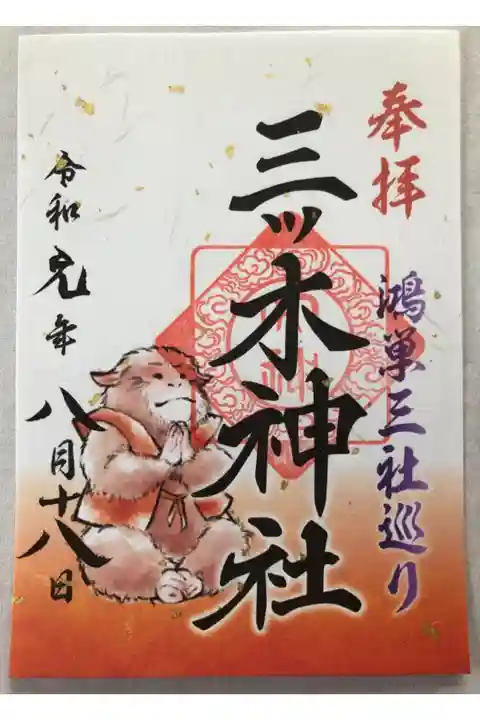 奉拝
鴻巣三社巡り
三ッ木神社
令和元年
八月十八日